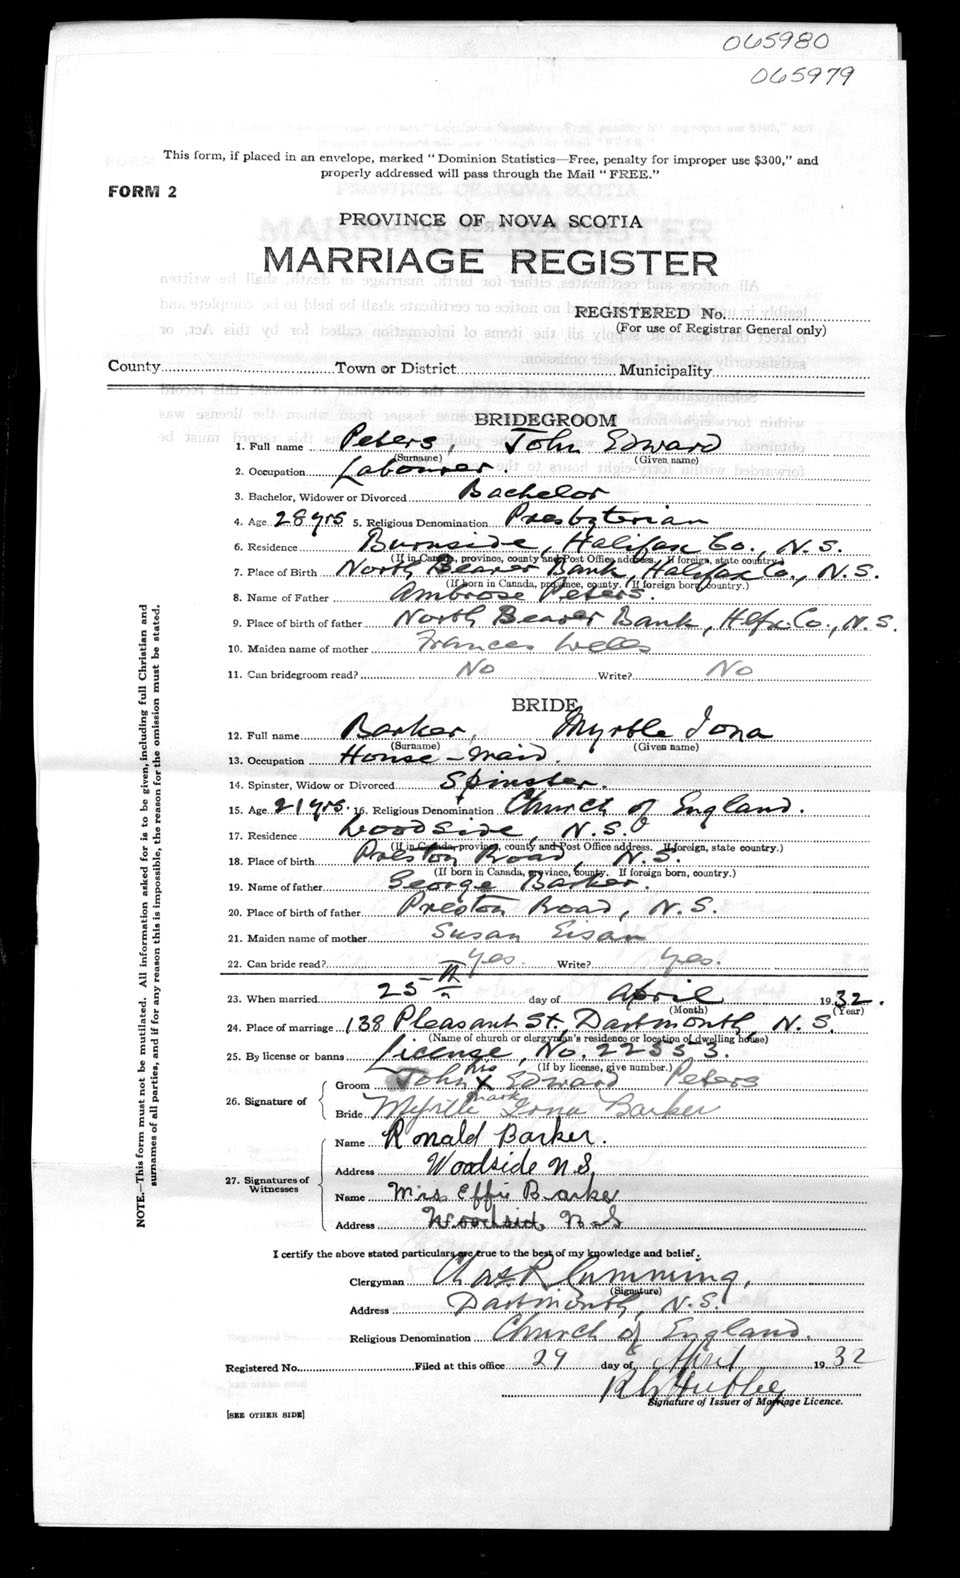 065980
065979
This form, if placed in an envelope, marked "Dominion Statistics—Free, penalty for improper use $300," and
properly addressed will pass through the Mail "FREE."
FORM 2
PROVINCE OF NOVA SCOTIA
MARRIAGE REGISTER
REGISTERED No.
(For use of Registrar General only)
County Town or District Municipality
BRIDEGROOM
1. Full name Peters, John Edward
(Surname) (Given name)
2. Occupation Labourer.
3. Bachelor, Widower or Divorced Bachelor
4. Age 28 yrs 5. Religious Denomination Presbyterian
6. Residence Burnside, Halifax Co., N.S.
(If in Canada, province, county and Post Office address. If foreign, state country.)
7. Place of Birth North Beaver Bank, Halifax Co., N.S.
(If born in Canada, province, county. If foreign born, country.)
8. Name of Father Ambrose Peters.
9. Place of birth of father North Beaver Bank, Hlfx. Co., N.S.
10. Maiden name of mother Frances Wells
11. Can bridegroom read? No Write? No
BRIDE
12. Full name Barker, Myrtle Iona
(Surname) (Given name)
13. Occupation House-maid.
14. Spinster, Widow or Divorced Spinster.
15. Age 21 yrs. 16. Religious Denomination Church of England.
17. Residence Woodside, N.S.
(If in Canada, province, county and Post Office address. If foreign, state country.)
18. Place of birth Preston Road, N.S.
(If born in Canada, province, county. If foreign born, country.)
19. Name of father George Barker.
20. Place of birth of father Preston Road, N.S.
21. Maiden name of mother Susan Eisan
22. Can bride read? Yes. Write? Yes.
23. When married 25th day of April 1932.
(Month) (Year)
24. Place of marriage 138 Pleasant St., Dartmouth, N.S.
(Name of church or clergyman's residence or location of dwelling house)
25. By license or banns License, No. 22553.
(If by license, give number.)
his
Groom John X Edward Peters
mark
26. Signature of
Bride Myrtle Iona Barker
Name Ronald Barker.
Address Woodside N.S.
27. Signatures of Witnesses
Name Mrs Effie Barker
Address Woodside N.S
I certify the above stated particulars are true to the best of my knowledge and belief.
Clergyman Chas. R. Cumming,
(Signature)
Address Dartmouth, N.S.
Religious Denomination Church of England.
Registered No. Filed at this office 29 day of April 1932
Signature of Issuer of Marriage Licence.
[SEE OTHER SIDE]
NOTE.—This form must not be mutilated. All information asked for is to be given, including full Christian and
surnames of all parties, and if for any reason this is impossible, the reason for the omission must be stated.